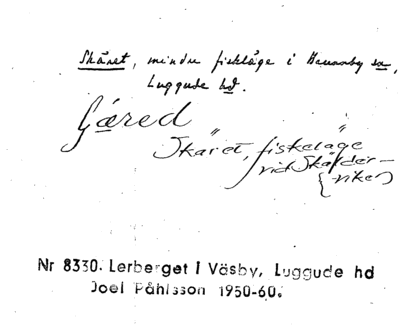 Skäret, mindre fiskläge i Brunnby sn,
Luggude hd.
Gæred
Skäret, fiskeläge
vid Skälder-
(viken)
Nr 8330. Lerberget i Väsby, Luggude hd
Joel Påhlsson 1950-60.